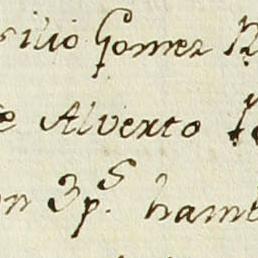 silio Gomez
Alverto
3p.s hame